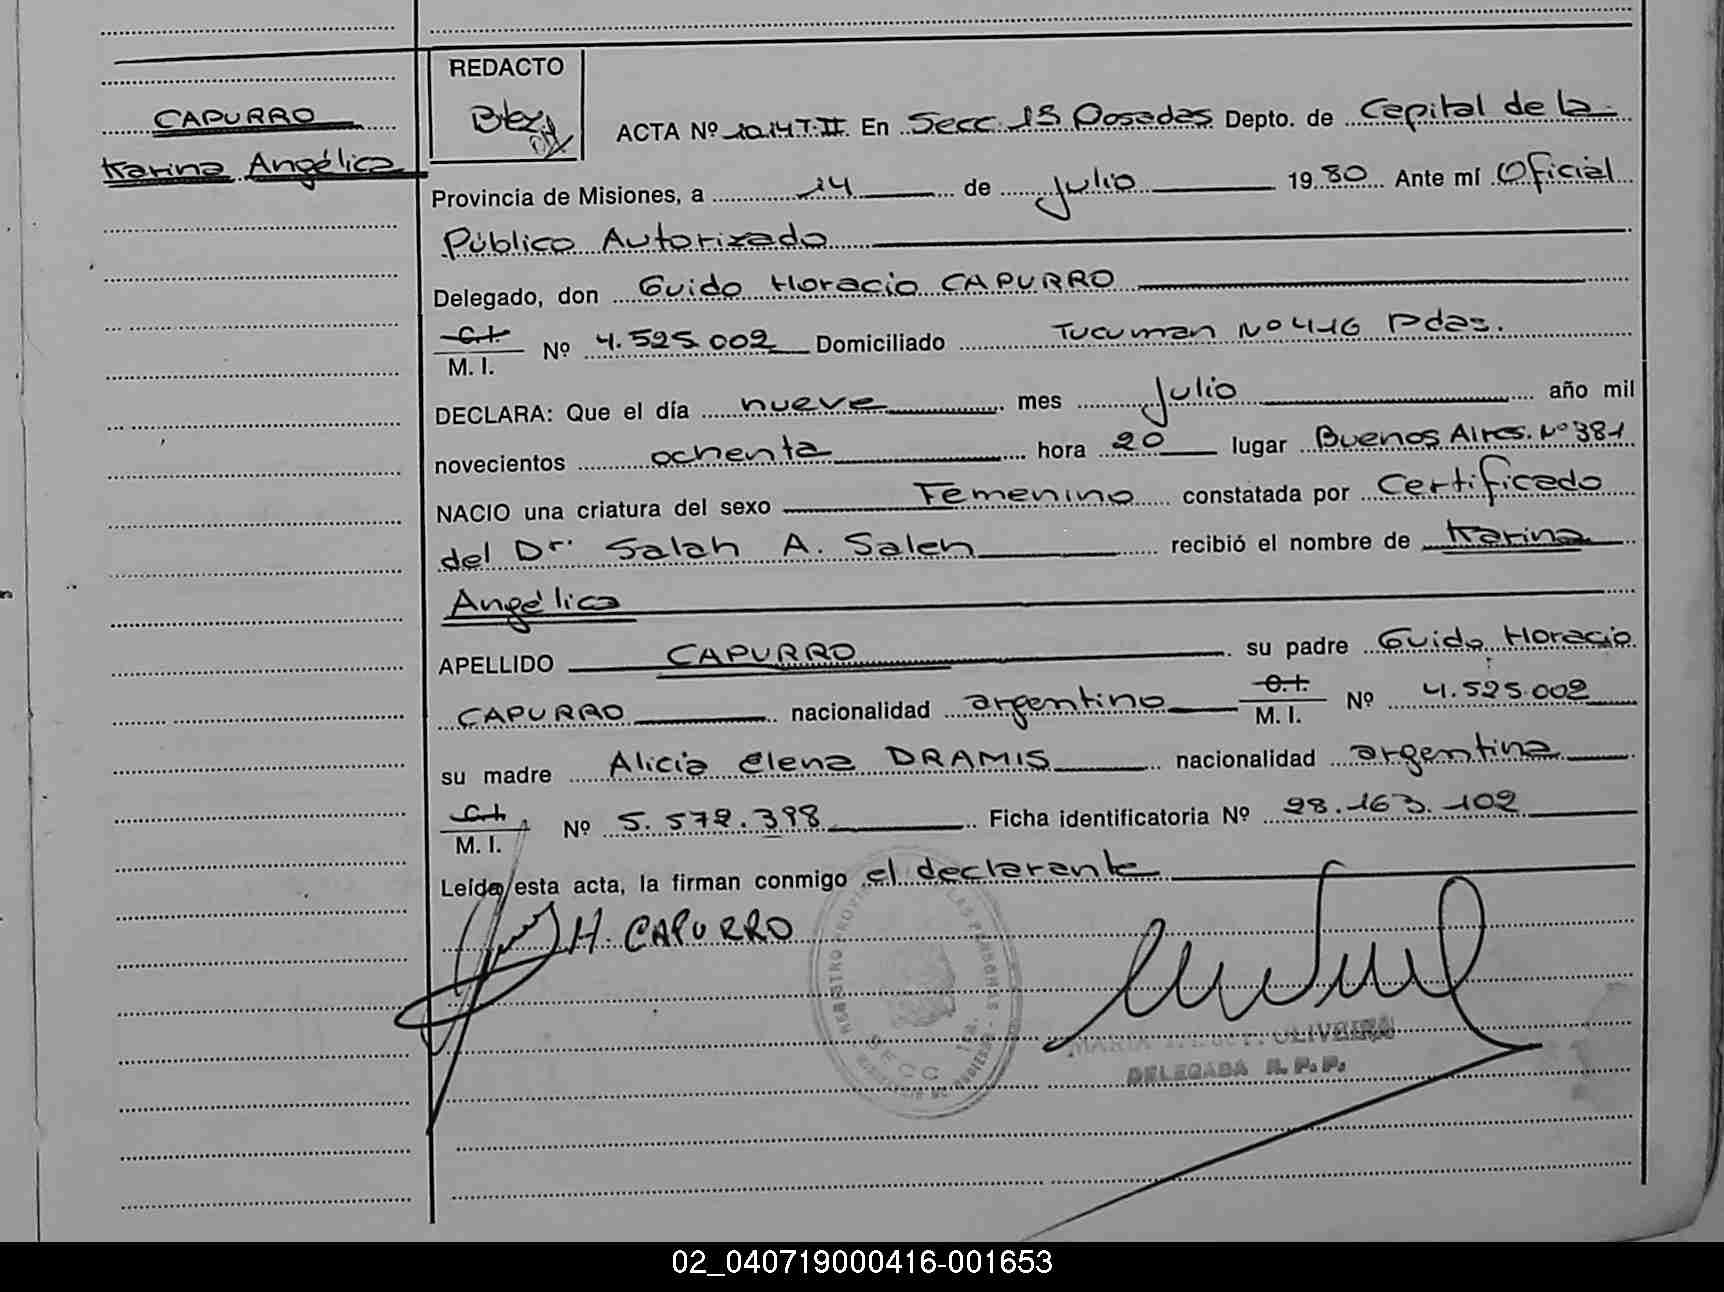 REDACTO
CAPURRO
Karina Angélica
ACTA Nº 1014 T.II. En Secc. 1ª Posadas Depto. de Capital de la
Provincia de Misiones, a 14 de julio 1980 Ante mí Oficial
Público Autorizado
Delegado, don Guido Horacio CAPURRO
C.I.
M. I. Nº 4.525.002 Domiciliado Tucuman Nº 416 Pdas.
DECLARA: Que el día nueve mes julio año mil
novecientos ochenta hora 20 lugar Buenos Aires Nº 381
NACIO una criatura del sexo Femenino constatada por Certificado
del Dr. Salah A. Saleh recibió el nombre de Karina
Angélica
APELLIDO CAPURRO su padre Guido Horacio
CAPURRO nacionalidad argentino C.I. M. I. Nº 4.525.002
su madre Alicia Elena DRAMIS nacionalidad argentina
C.I.
M. I. Nº 5.572.398 Ficha identificatoria Nº 28.163.102
Leída esta acta, la firman conmigo el declarante
H. CAPURRO
REGISTRO PROVINCIAL DE LAS PERSONAS
SECC 1ra.
MARIA OLIVEIRA
DELEGADA R. P. P.
02_040719000416-001653